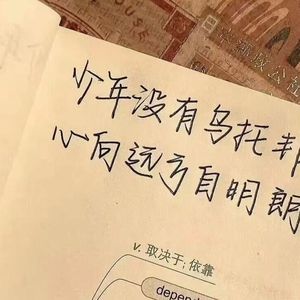 少年没有乌托邦
心向远方自明朗
v. 取决于; 依靠
depend